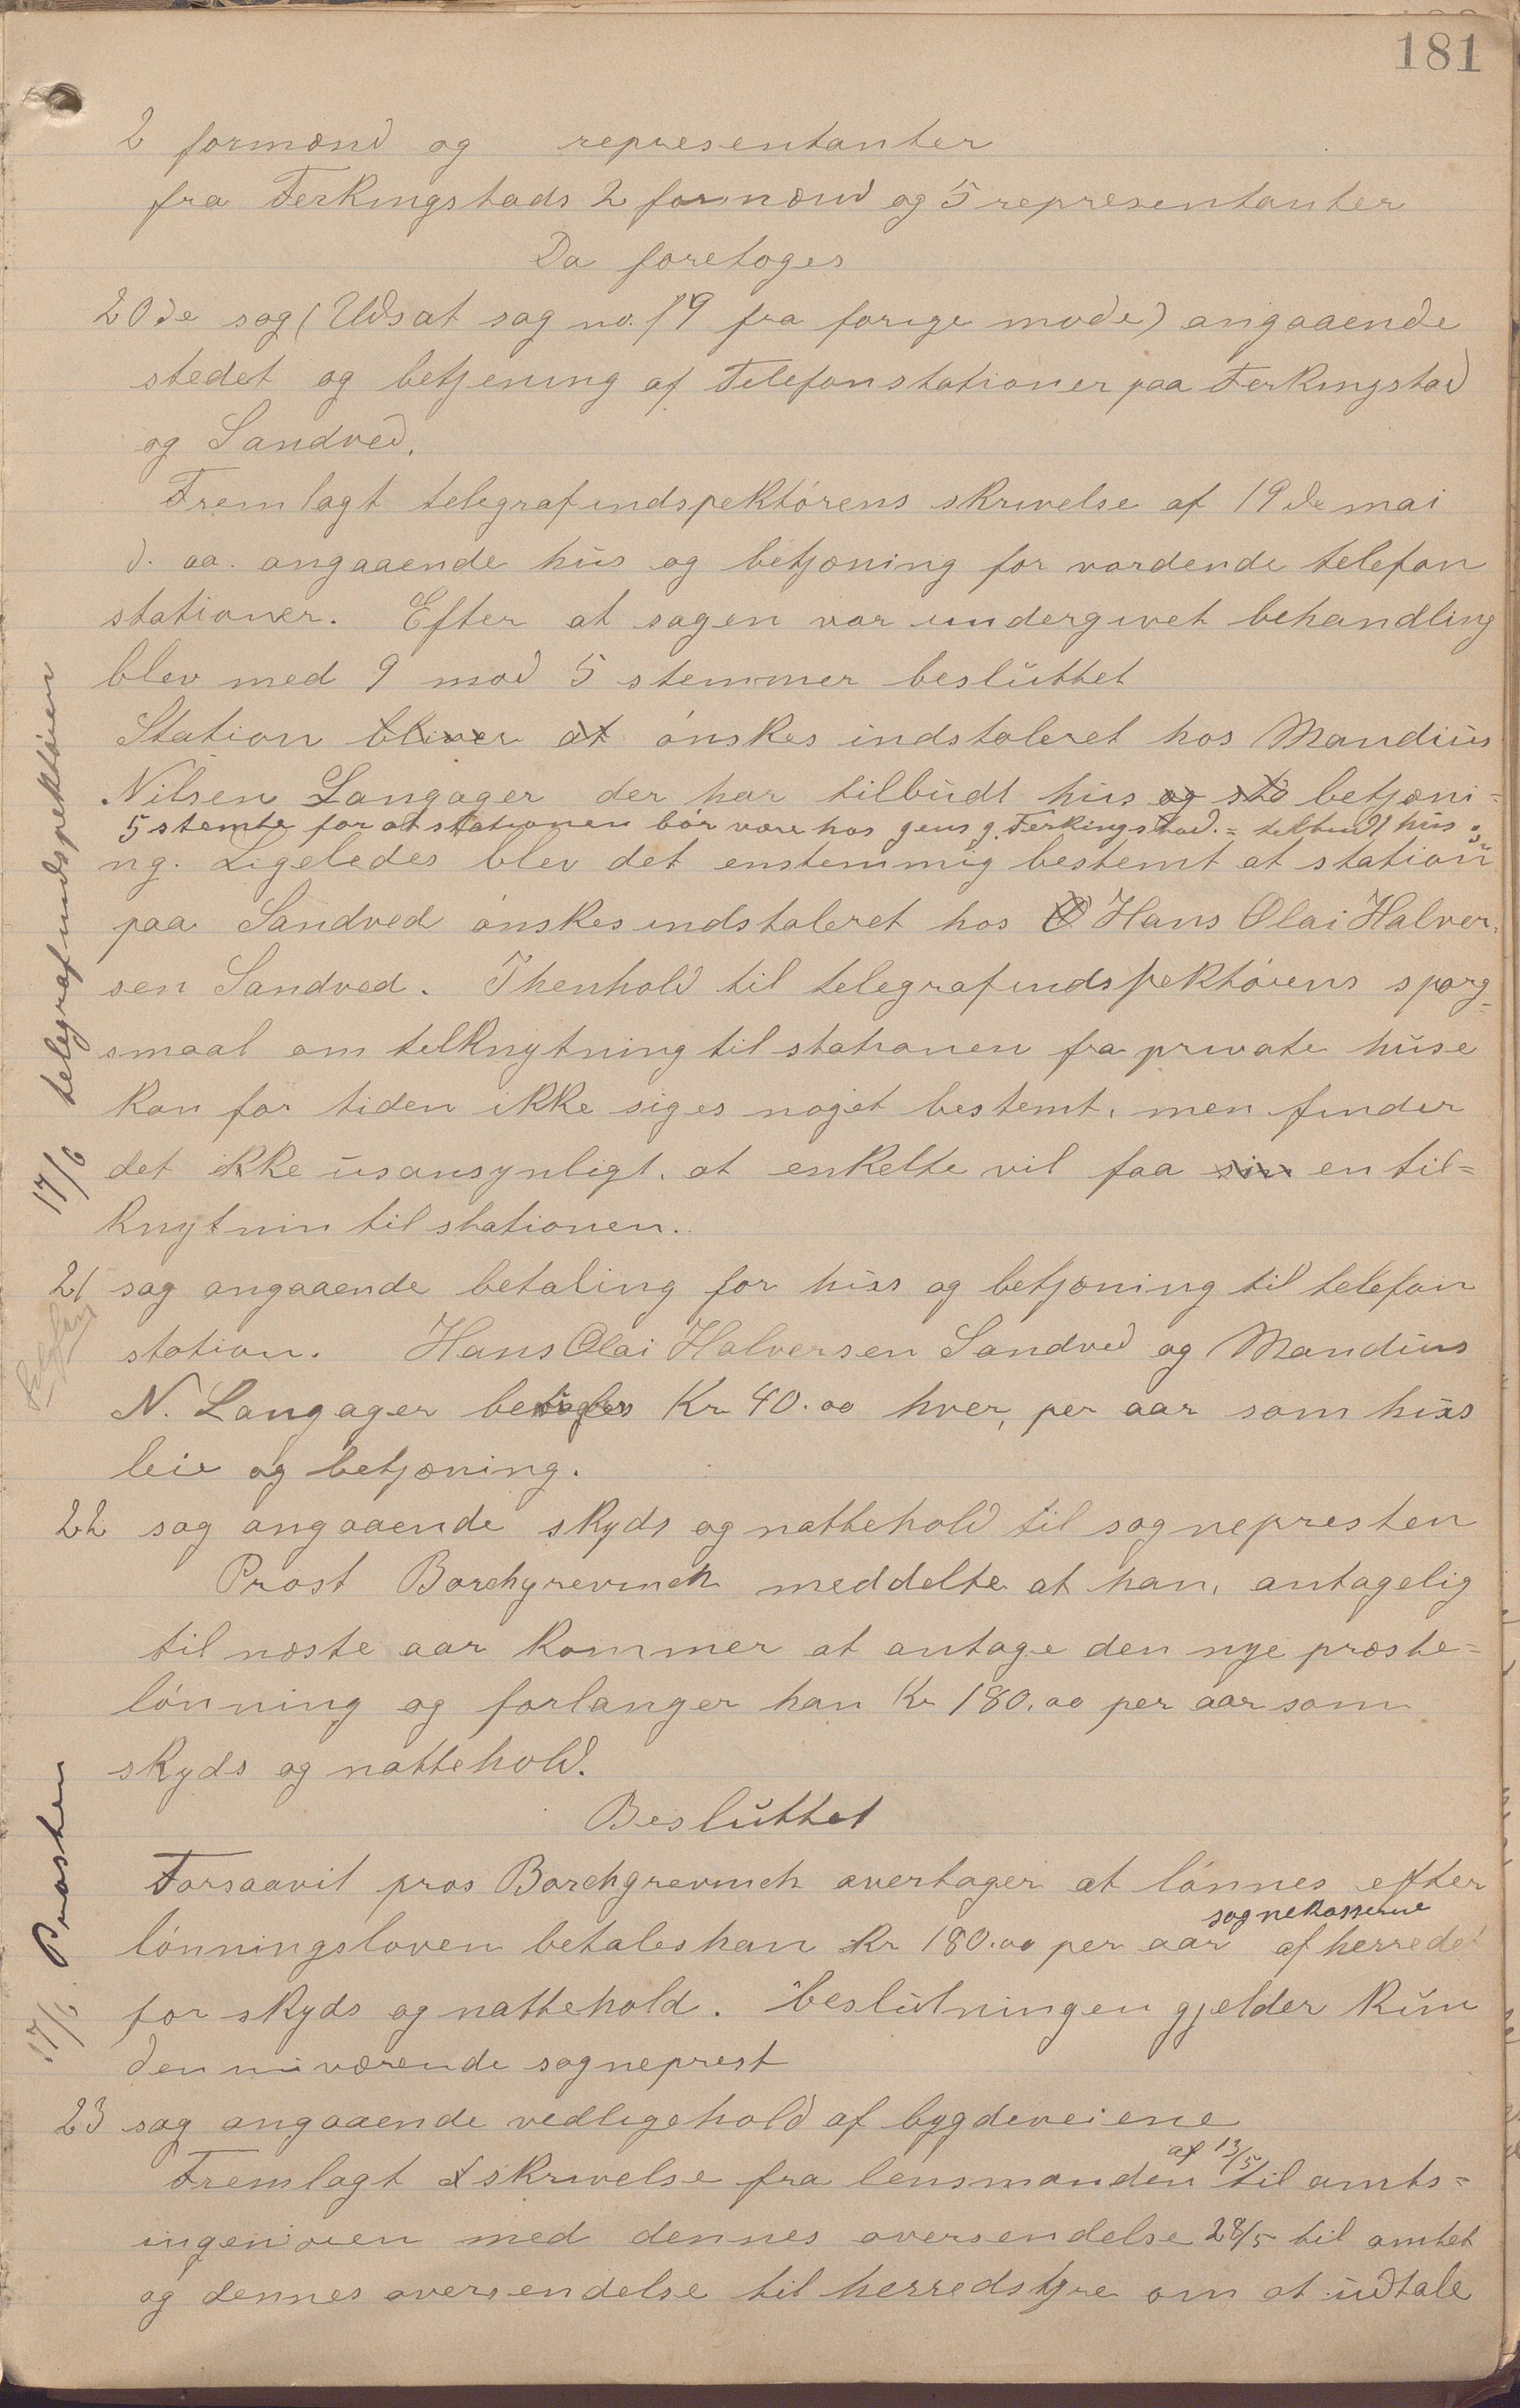 181
2 formænd og representanter
fra Ferkingstads 2 formænd og 5 representanter
Da foretoges
20de sag (Udsat sag no. 19 fra forige møde) angaaende
stedet og betjening af Telefonstationer paa Ferkingstad
og Sandved.
Fremlagt telegrafindspektørens skrivelse af 19de mai
d. aa. angaaende hus og betjæning for vordende telefon
stationer. Efter at sagen var undergivet behandling
blev med 9 mod 5 stemmer besluttet
Station bliver at ønskes indstaleret hos Mandius
Nilsen Langager der har tilbudt hus og sto betjæni=
5 stemte for at stationen bør være hos Jens J. Ferkingstad. = tilbudt hus
ng. Ligeledes blev det enstemmig bestemt at station
paa Sandved ønskes indstaleret hos O Hans Olai Halver=
sen Sandved. Ihenhold til telegrafindspektørens spørg=
smaal om tilknytning til stationen fra private huse
kan for tiden ikke siges noget bestemt, men finder
det ikke usansynligt. at enkelte vil faa sin en til=
knytnin til stationen.
17/6 telegrafindspektøren
21 sag angaaende betaling for hus og betjæning til telefon
station. Hans Olai Halversen Sandved og Mandius
N. Langager betales Kr 40.00 hver, per aar som hus
leie og betjæning.
22 sag angaaende skyds og nattehold til sognepresten
Prost Borchgrevinch meddelte at han, antagelig
til næste aar kommer at antage den nye præste=
lønning og forlanger han Kr 180.00 per aar som
skyds og nattehold.
Besluttet
Forsaavit pros Borchgrevinch overtager at lønnes efter
sognekasserne
lønningsloven betales han Kr 180.00 per aar af herredet
for skyds og nattehold. beslutningen gjelder kun
den nuværende sogneprest
17/6. Præsten
23 sag angaaende vedligehold af bygdeveiene
af 13/5
Fremlagt skrivelse fra lensmanden til amts=
ingeniøren med dennes oversendelse 28/5 til amtet
og dennes oversendelse til herredstyre om at udtale